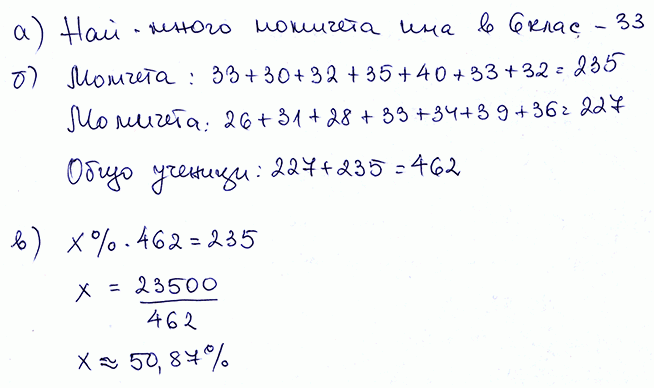 а) Най-много момичета има в 6 клас – 33
б) Момчета: 33+30+32+35+40+33+32=235
Момичета: 26+31+28+33+34+39+36=227
Общо ученици: 227+235=462
в) x%.462=235
x = 23500
462
x ≈ 50,87%